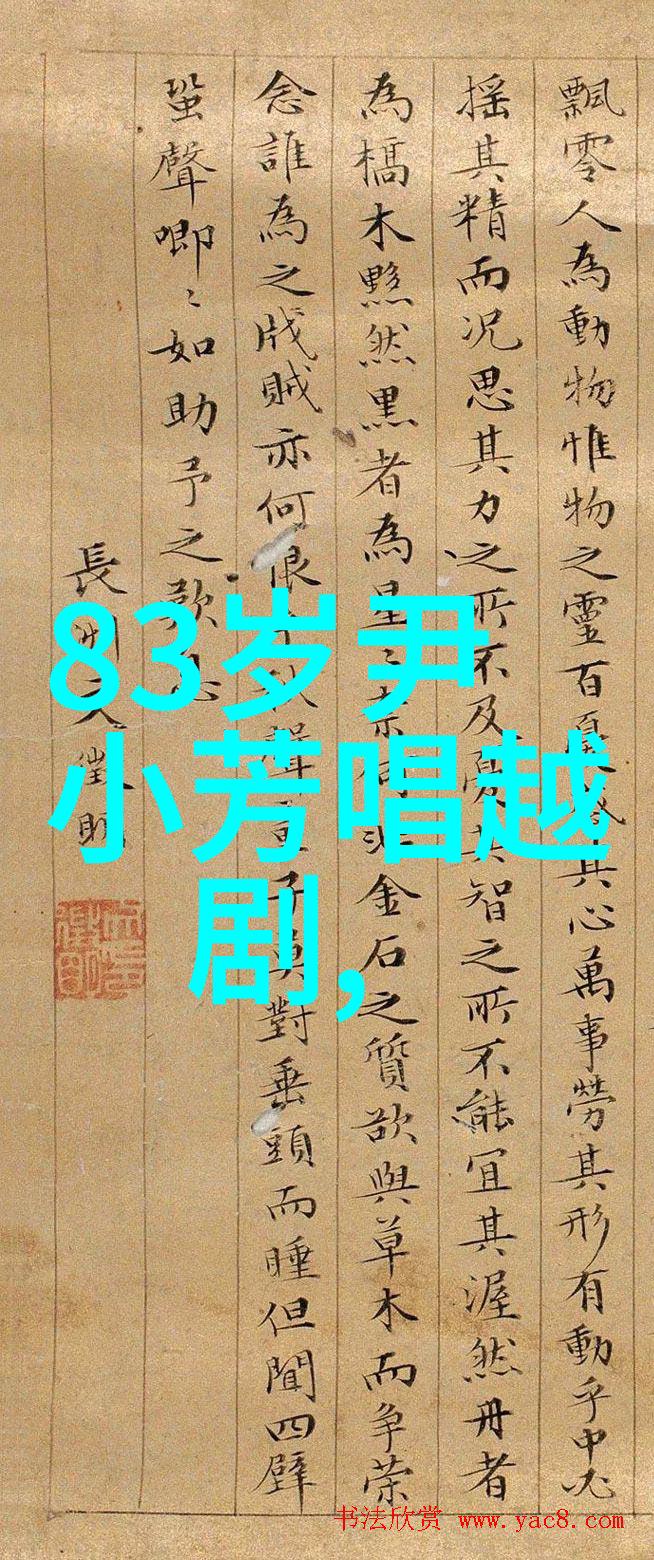 飄零人為動物惟物之靈百憂其心萬事勞其形有動乎中必
搖其精而況思其力之所不及憂其智之所不能宜其渥然丹者
為槁木黟然黑者為星〻奈何非金石之質欲與草木而爭榮
念誰為之戕賊亦何恨乎秋聲童子莫對垂頭而睡但聞四壁
蛩聲唧〻如助予之歎息
長洲文徵明
83岁尹
小芳唱越
剧,
书法欣赏 www.yac8.com